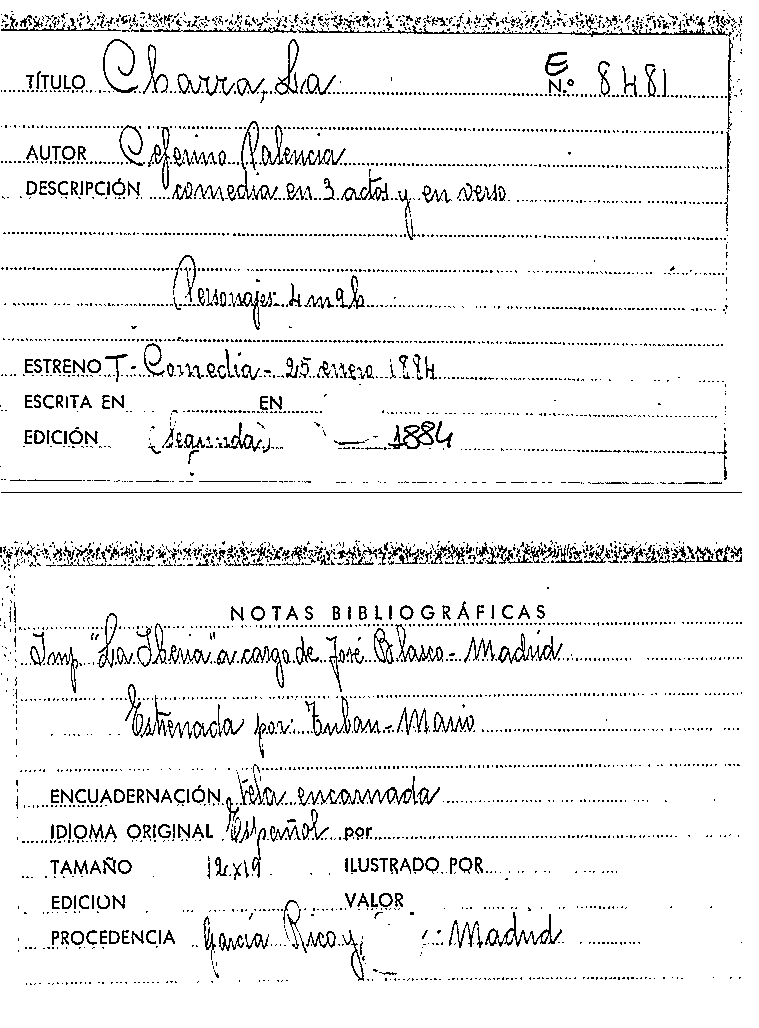 TÍTULO Charra, La E N.º 8481
AUTOR Ceferino Palencia
DESCRIPCIÓN comedia en 3 actos y en verso
Personajes: 4 m 9 h
ESTRENO T - Comedia - 25 enero 1884
ESCRITA EN EN
EDICIÓN (Segunda) 1884
NOTAS BIBLIOGRÁFICAS
Imp. "La Iberia" a cargo de José Blasco - Madrid
Estrenada por: Tubau - Mario
ENCUADERNACIÓN tela encarnada
IDIOMA ORIGINAL Español por
TAMAÑO 12x19 ILUSTRADO POR
EDICION VALOR
PROCEDENCIA García Rico y Madrid